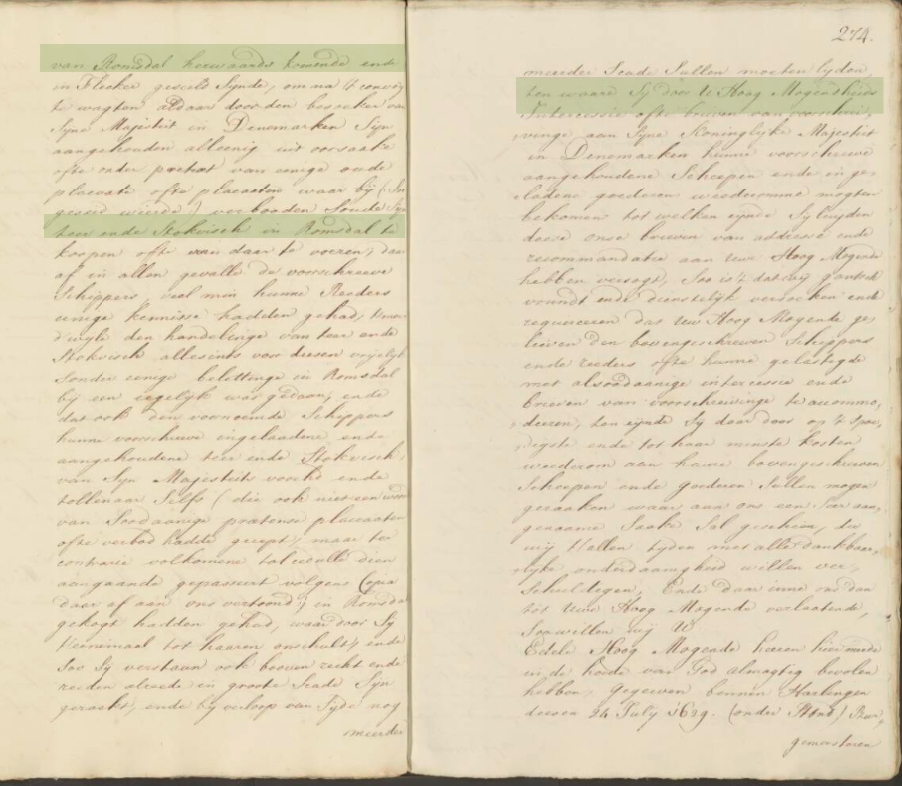 van Romsdal herwaards komende ende
in Flecker geseilt Synde, om na 't convoy
te wagten aldaar door den besoeker van
Syne Majesteit in Denemarken Syn
aangehouden alleenig uit oorsaake
ofte onder pretext van eenige oude
placcate ofte placcaaten waar bij (Soo
geseid wierde) verbooden Soude Syn
teer ende Stokvisch in Romsdal te
koopen ofte van daar te voeren, daar
af in allen gevalle de voorschreeve
Schippers, veel min hunne Reeders
eenige kennisse hadden gehad,
d'wyle den handelinge van teer ende
Stokvisch allesints voor deesen vrijelyk
Sonder eenige belettinge in Romsdal
bij een iegelijk was gedaan, ende
dat ook den voornoemde Schippers
hunne voorschreeve ingelaadene ende
aangehoudene teer ende Stokvisch
van Syn Majesteits ende
tollenaar Selfs (die ook niet een woord
van Soodaanige pretense placcaaten
ofte verbod hadde gerept, maar ter
contrarie volkomene tol uidt dien
aangaande gepasseert volgens Copia
daar af aan ons vertoond) in Romsdal
gekogt hadden gehad, waar door Sy
t'eenemaal tot haaren onschult, ende
Soo Sy verstaan ook booven recht ende
reeden alreede in groote Scade Syn
geraakt, ende by verloop van Tyde nog
meerder
274.
meerder Scade Sullen moeten lyden
ten waare Sy door U Hoog Mogentheids
Intercessie ofte brieven van voorschrij,
vinge aan Syne Koninglyke Majesteit
in Denemarken hunne voorschreeve
aangehoudene Scheepen ende in ge,
ladene goederen weederomme mogten
bekomen tot welken eynde Sy luyden
deese onse brieven van addresse ende
recommandatie aan Uwe Hoog Mogende
hebben versogt, Soo is't dat wij gantsch
vrundt ende dienstelijk versoeken ende
requireeren dat Uw Hoog Mogente ge,
lieven den bovengeschreeven Schippers
ende reeders ofte hunne gelastigde
met alsoodaanige intercessie ende
brieven van voorschrevinge te accommo,
deeren, ten eynde Sy daar door op 't Spoe,
digste ende tot haar minste kosten
weederom aan haare bovengeschreeven
Scheepen ende goederen Sullen mogen
geraaken waar aan ons een Seer aan,
genaame Saake Sal geschien, die
wij t'allen tyden met alle dankbaar,
lyke onderdaanigheid willen ver,
Schuldigen, Ende daar inne ons dan
tot Uwe Hoog Mogende verlaatende,
Soo willen wij U
Edele Hoog Mogende heeren hier meede
in de hoede van God almagtig bevolen
hebben, gegeeven binnen Harlingen
deesen 24 July 1629. (onder Stond)
gemeesteren